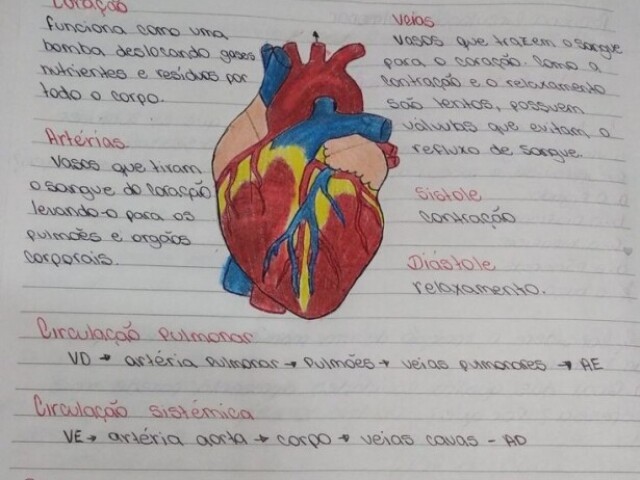 Coração
funciona como uma
bomba deslocando gases
nutrientes e resíduos por
todo o corpo.
Artérias
Vasos que tiram
o sangue do coração
levando-o para os
pulmões e orgãos
corporais.
Veias
Vasos que trazem o sangue
para o coração. Como a
contração e o relaxamento
são lentos, possuem
válvulas que evitam o
refluxo de sangue.
Sístole
contração
Diástole
relaxamento.
Circulação pulmonar
VD → artéria pulmonar → pulmões → veias pulmonares → AE
Circulação sistêmica
VE → artéria aorta → corpo → veias cavas - AD